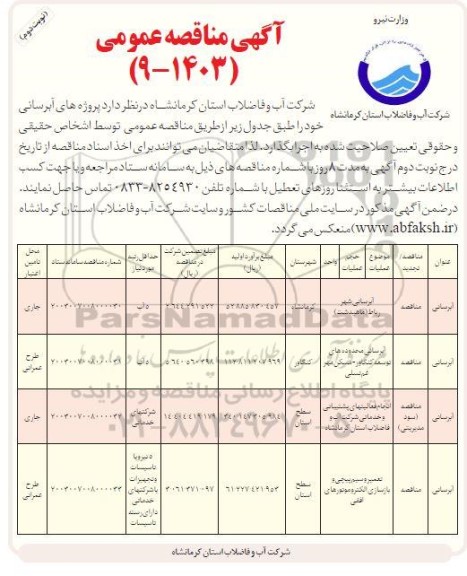 (نوبت دوم)
وزارت نیرو
آگهی مناقصه عمومی
(۹-۱۴۰۳)
شرکت آب و فاضلاب استان کرمانشاه
شرکت آب و فاضلاب استان کرمانشاه در نظر دارد پروژه های آبرسانی
خود را طبق جدول زیر از طریق مناقصه عمومی توسط اشخاص حقیقی
و حقوقی تعیین صلاحیت شده به اجرا بگذارد. لذا متقاضیان می توانند برای اخذ اسناد مناقصه از تاریخ
درج نوبت دوم آگهی به مدت ۸ روز با شماره مناقصه های ذیل به سامانه ستاد مراجعه و یا جهت کسب
اطلاعات بیشتر به استثنا روزهای تعطیل با شماره تلفن ۸۲۵۴۹۳۰-۰۸۳۳ تماس حاصل نمایند.
در ضمن آگهی مذکور در سایت ملی مناقصات کشور و سایت شرکت آب و فاضلاب استان کرمانشاه
(www.abfaksh.ir) منعکس می گردد.
عنوان مناقصه/ تجدید موضوع عملیات حجم عملیات واحد شهرستان مبلغ برآورد اولیه (ریال) مبلغ تضمین شرکت در مناقصه (ریال) حداقل رتبه مورد نیاز شماره مناقصه سامانه ستاد محل تامین اعتبار
آبرسانی مناقصه آبرسانی شهر رباط (ماهیدشت) کرمانشاه ۵آب جاری
آبرسانی مناقصه آبرسانی محدوده های توسعه کنگاور - مسکن مهر کنگاور ۵آب طرح عمرانی
آبرسانی مناقصه انجام فعالیتهای پشتیبانی و خدماتی شرکت آب و فاضلاب استان کرمانشاه سطح استان شرکتهای خدماتی جاری
آبرسانی مناقصه تعمیر و سیم پیچی و بازسازی الکتروموتورهای افقی سطح استان ۶۱۲۲۷۴۲۱۹۵۳ ۳۰۶۱۳۷۱۰۹۷ ۵ نیرو یا تاسیسات و تجهیزات یا شرکتهای خدماتی دارای رسته تاسیسات طرح عمرانی
ParsNamadData
پایگاه اطلاع رسانی مناقصه و مزایده
۰۲۱-۸۸۳۴۹۶۷۰
شرکت آب و فاضلاب استان کرمانشاه